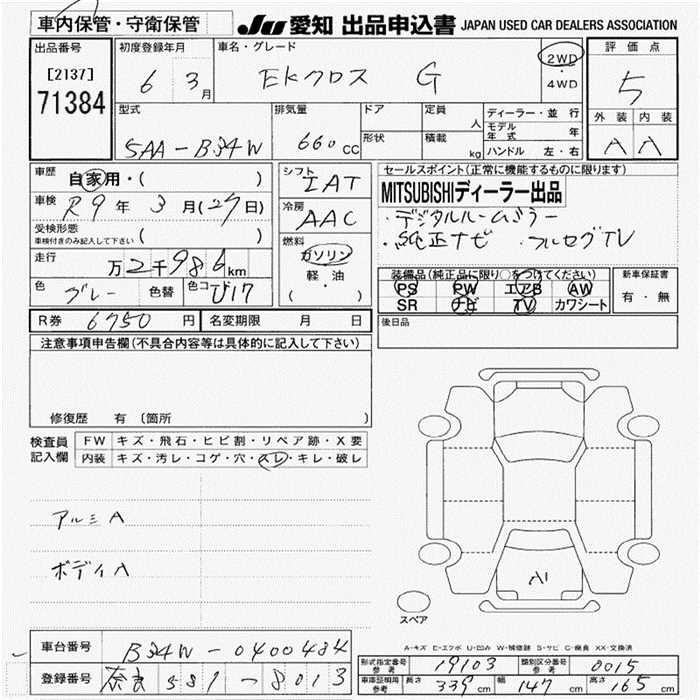 車内保管・守衛保管 JU 愛知 出品申込書 JAPAN USED CAR DEALERS ASSOCIATION
出品番号 初度登録年月 車名・グレード 評価点
[2137] 6 3月 EKクロス G 2WD・4WD 5
71384 外装 内装
型式 排気量 ドア 定員 人 ディーラー・並行
5AA-B34W 660cc 形状 積載 kg モデル年式 年 A A
ハンドル 左・右
車歴 自家用・( ) シフト IAT セールスポイント(正常に機能するものに限ります)
車検 R9年 3月(27日) 冷房 AAC MITSUBISHIディーラー出品
受検形態 ( ) ・デジタルルームミラー
車検付きのみ記入して下さい 燃料 ・純正ナビ ・フルセグTV
走行 万2千986km ガソリン
軽・油 装備品(純正品に限り○をつけてください) 新車保証書
色 グレー 色替 色コード U17 ( ) PS PW エアB AW 有・無
SR ナビ TV カワシート
R券 6750円 名変期限 月 日 後日品
注意事項申告欄(不具合内容等は具体的に記入して下さい)
修復歴 有 (箇所 )
検査員 FW キズ・飛石・ヒビ割・リペア跡・X要
記入欄 内装 キズ・汚レ・コゲ・穴・スレ・キレ・破レ
アルミA
ボディA
A1
スペア
A-キズ E-エクボ U-凹み W-補修跡 S-サビ C-腐食 XX-交換済
車台番号 B34W-0400484 形式指定番号 参考 19103 類別区分番号 参考 0015
登録番号 奈良 581-8013 車車証明用 参考 長さ 339cm 幅 147cm 高さ 165cm